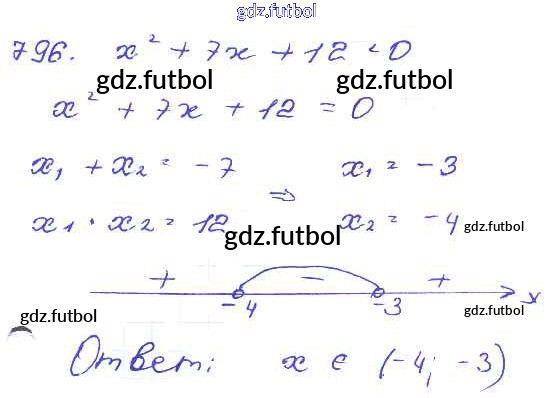 gdz.futbol
796. x² + 7x + 12 < 0
gdz.futbol gdz.futbol
x² + 7x + 12 = 0
x₁ + x₂ = -7 x₁ = -3
⇒
x₁ · x₂ = 12 x₂ = -4 gdz.futbol
gdz.futbol
+ - +
-4 -3 x
gdz.futbol gdz.futbol
Ответ: x ∈ (-4; -3)
gdz.futbol